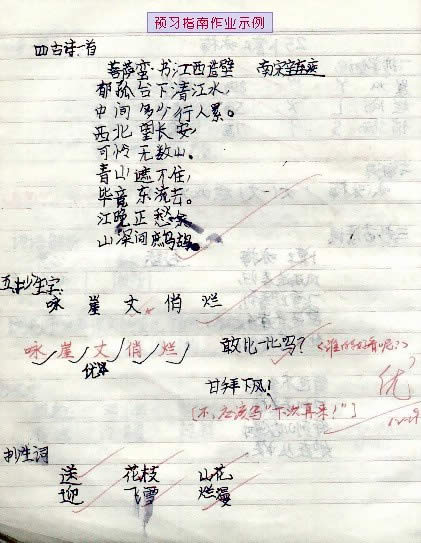 预习指南作业示例
四、古诗一首
菩萨蛮·书江西造壁 南宋辛弃疾
郁孤台下清江水,
中间多少行人累。
西北望长安,
可怜无数山。
青山遮不住,
毕竟东流去。
江晚正愁余
山深闻
五、抄生字
咏 崖 丈 俏 烂
咏 崖 丈 俏 烂 敢比一比吗?(谁的好看呢?)
优 优
甘拜下风!
[不,应该写"下次再来!"]
抄生词
送 花枝 山花
迎 飞雪 烂漫